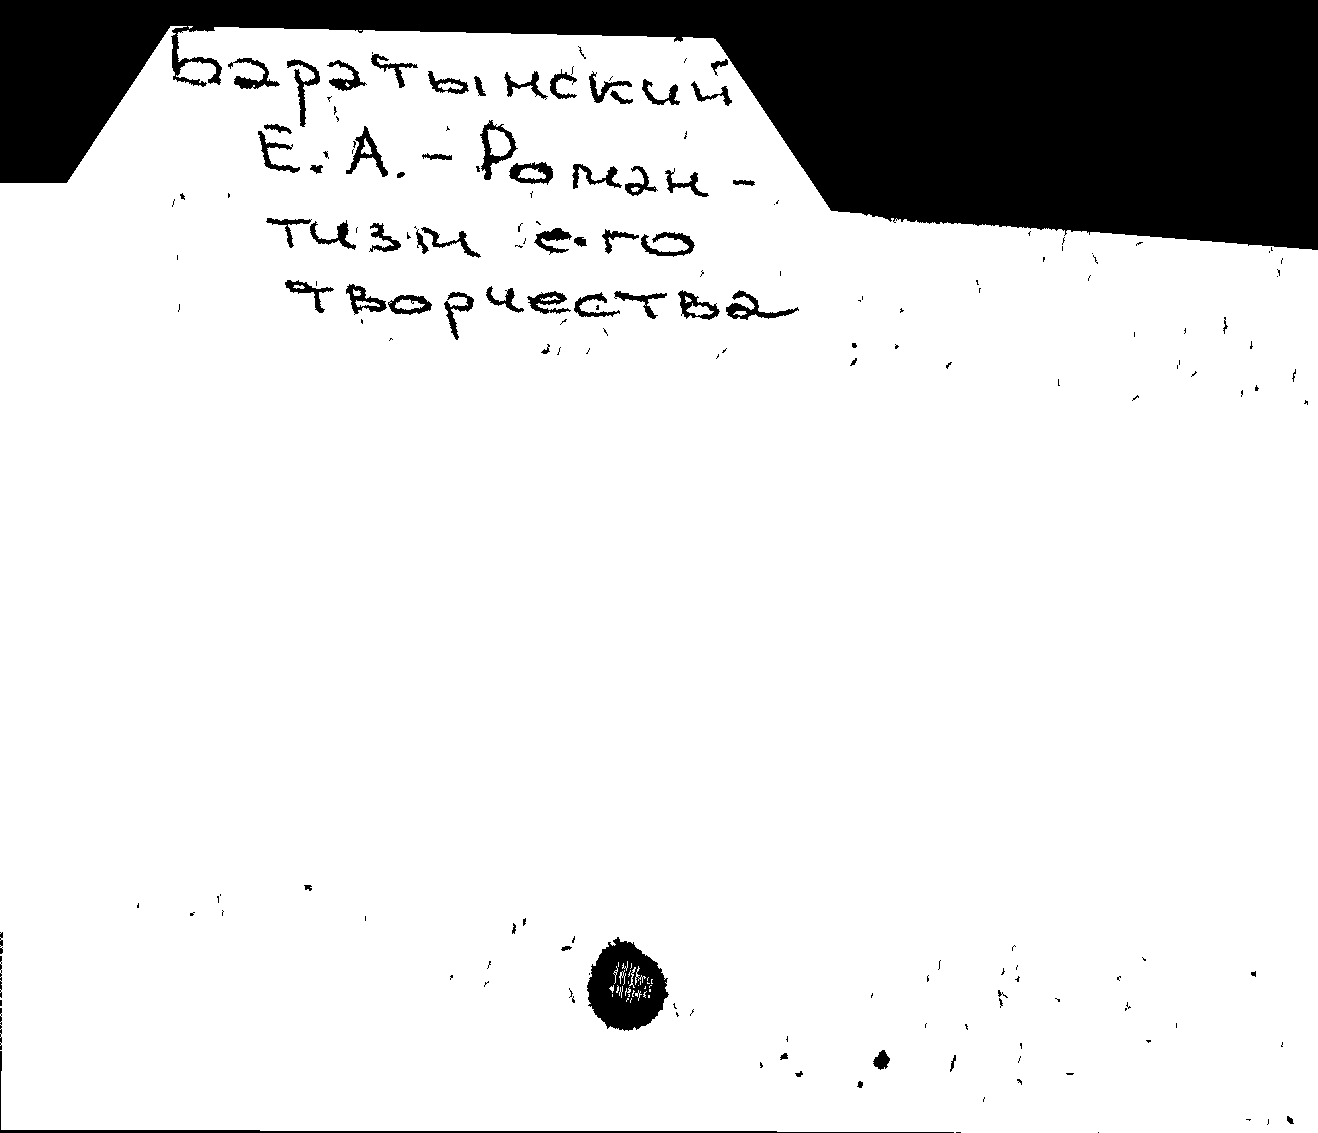 Баратынский
Е. А. - Роман-
тизм его
творчества